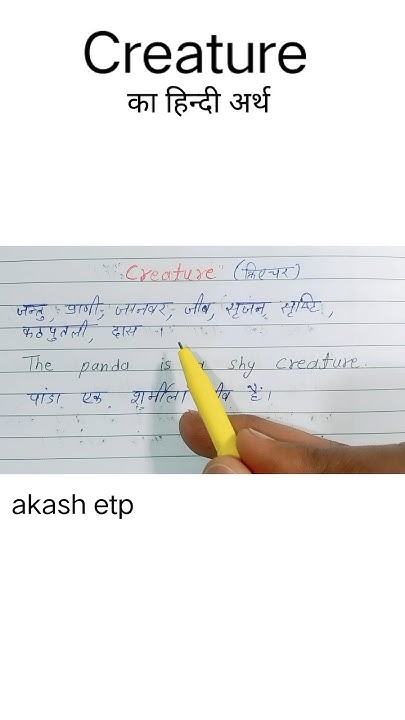 Creature
का हिन्दी अर्थ
"Creature" (क्रिएचर)
जन्तु, प्राणी, जानवर, जीव, सृजन, सृष्टि,
कठपुतली, दास ।
The panda is a shy creature.
पांडा एक शर्मीला जीव है।
akash etp